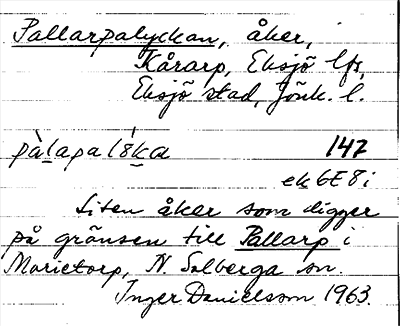 Pallarpalyckan, åker, i
Kårarp, Eksjö lfs,
Eksjö stad, Jönk. l.
pàlapalýka 147
ek 6E8i
Liten åker som ligger
på gränsen till Pallarp i
Marietorp, N. Solberga sn.
Inger Danielsson 1963.